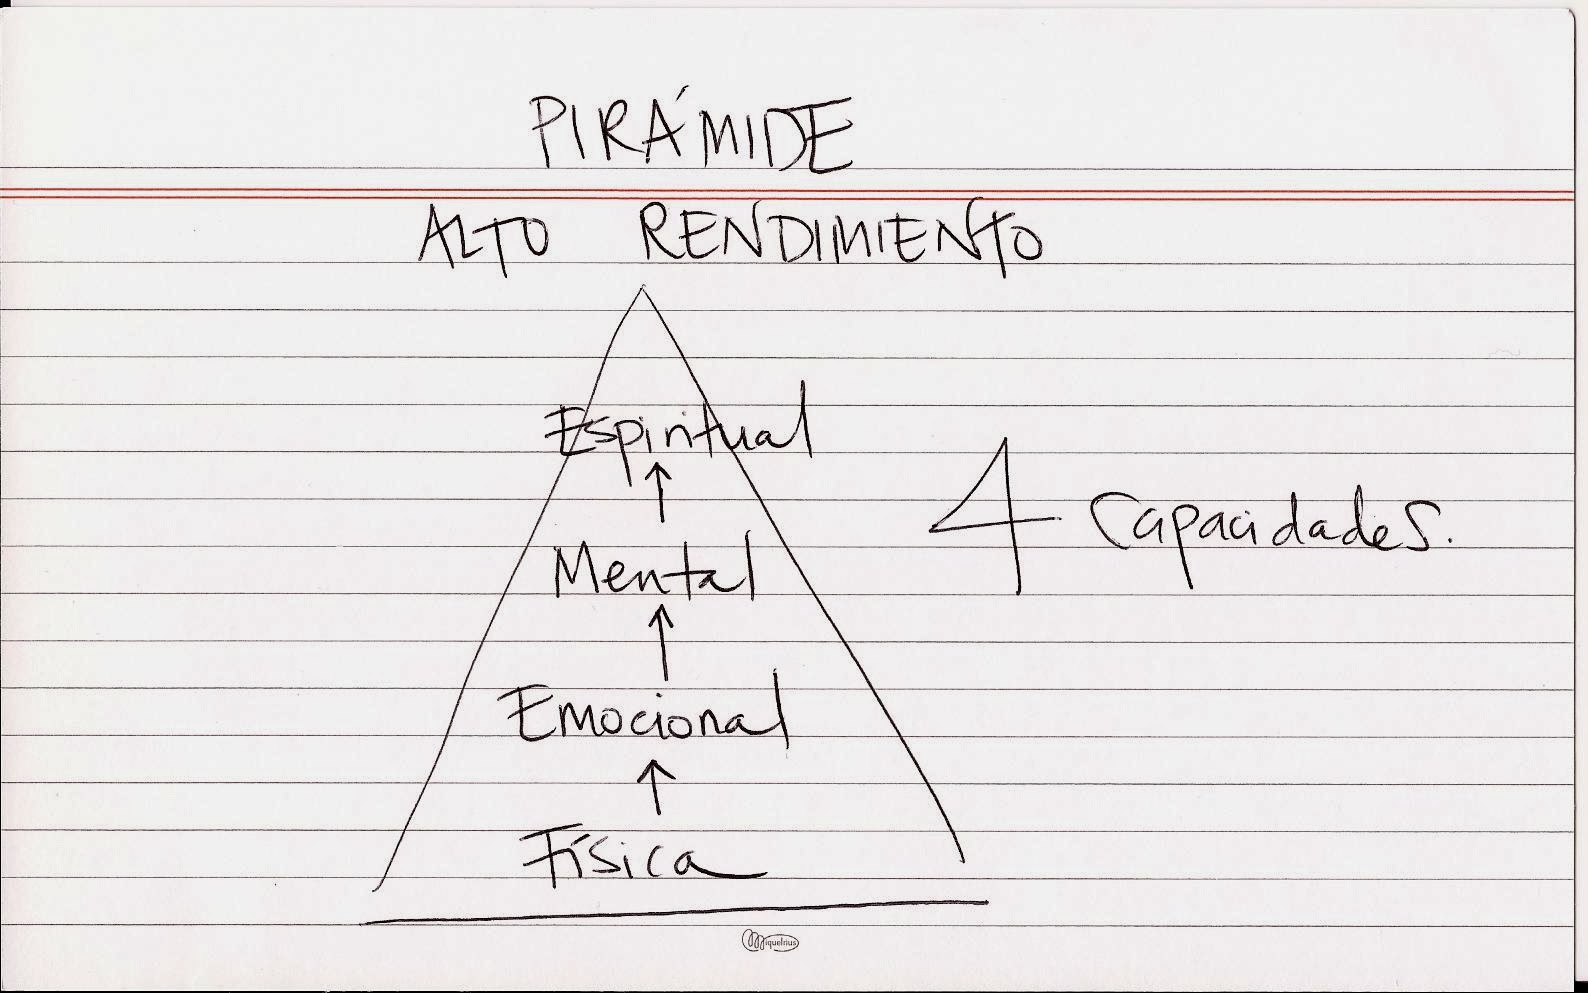 PIRÁMIDE
ALTO RENDIMIENTO
Espiritual
Mental
4 capacidades.
Emocional
Física
Miquelrius